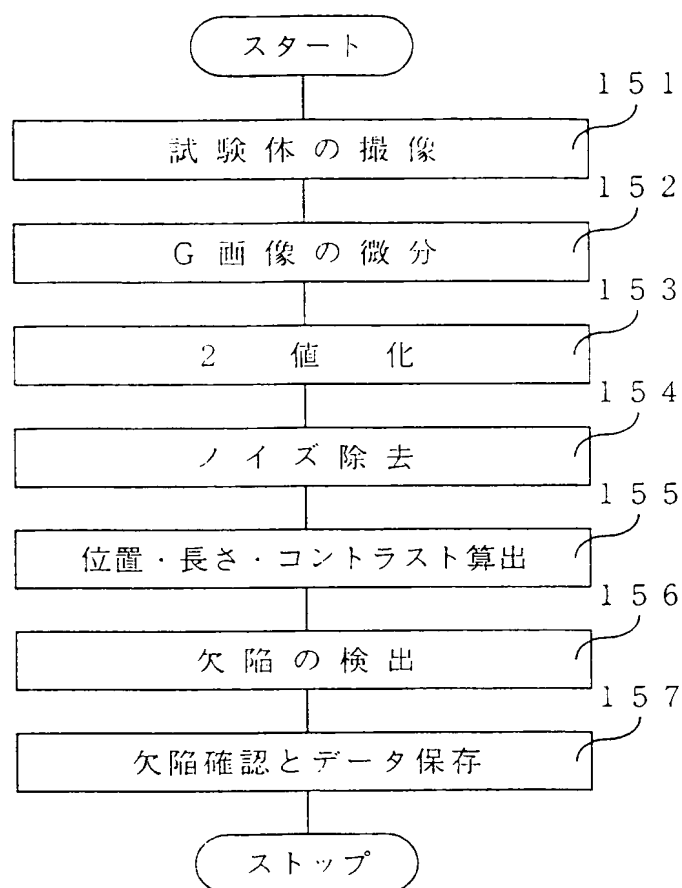 スタート
151
試験体の撮像
152
G画像の微分
153
2値化
154
ノイズ除去
155
位置・長さ・コントラスト算出
156
欠陥の検出
157
欠陥確認とデータ保存
ストップ